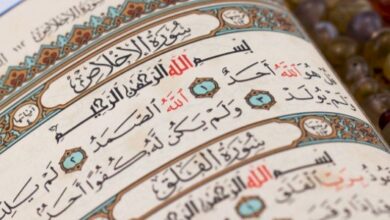 سُورَةُ الْإِخْلَاصِ
بِسْمِ اللَّهِ الرَّحْمَٰنِ الرَّحِيمِ
هُوَ اللَّهُ أَحَدٌ ١ اللَّهُ الصَّمَدُ ٢ لَمْ يَلِدْ
وَلَمْ يُولَدْ ٣ وَلَمْ يَكُنْ لَهُ كُفُوًا أَحَدٌ
سُورَةُ الْفَلَقِ
بِسْمِ اللَّهِ الرَّحْمَٰنِ الرَّحِيمِ
بِرَبِّ الْفَلَقِ